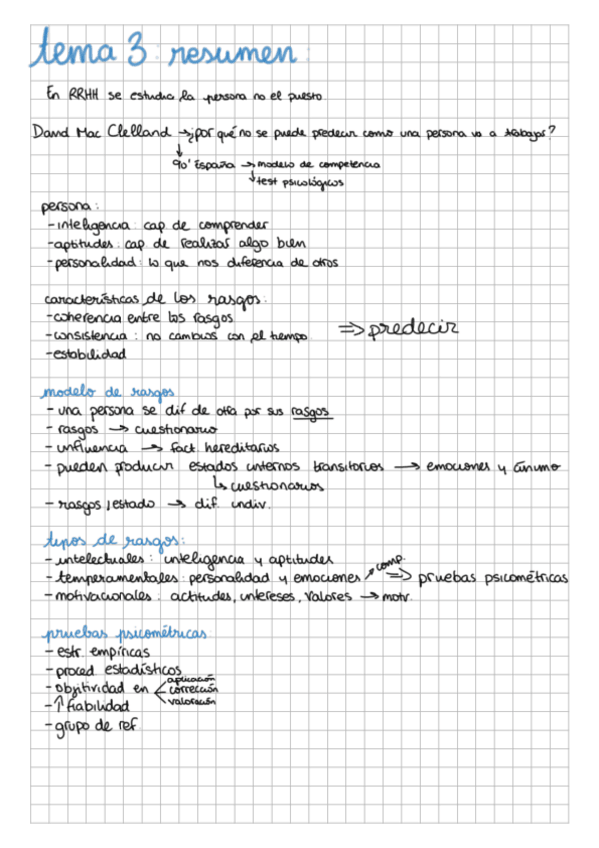 tema 3 : resumen :
En RRHH se estudia la persona no el puesto
David Mac Clelland → ¿por qué no se puede predecir como una persona va a trabajar?
↓
90' España → modelo de competencia
↳ test psicológicos
persona :
- inteligencia : cap de comprender
- aptitudes : cap de realizar algo bien
- personalidad : lo que nos diferencia de otros
características de los rasgos :
- coherencia entre los rasgos
- consistencia : no cambios con el tiempo
- estabilidad
⇒ predecir
modelo de rasgos
- una persona se dif de otra por sus rasgos
- rasgos → cuestionario
- influencia → fact hereditarios
- pueden producir estados internos transitorios → emociones y ánimo
↳ cuestionarios
- rasgos / estado → dif. indiv.
tipos de rasgos :
- intelectuales : inteligencia y aptitudes
- temperamentales : personalidad y emociones ↗ comp. ⇒ pruebas psicométricas
- motivacionales : actitudes, intereses, valores → motv.
pruebas psicométricas
- estr. empíricas
- proced estadísticos
- objtividad en < aplicación
corrección
valoración
- ↑ fiabilidad
- grupo de ref